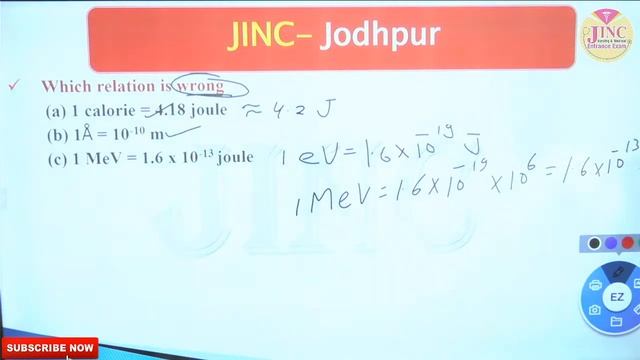 JINC– Jodhpur
JINC
Nursing & Medical
Entrance Exam
✓ Which relation is wrong
(a) 1 calorie = 4.18 joule ≈ 4.2 J
(b) 1Å = 10⁻¹⁰ m ✓
(c) 1 MeV = 1.6 x 10⁻¹³ joule
1 eV = 1.6 × 10⁻¹⁹ J
1 MeV = 1.6 × 10⁻¹⁹ × 10⁶ = 1.6 × 10⁻¹³
JINC
EZ
SUBSCRIBE NOW